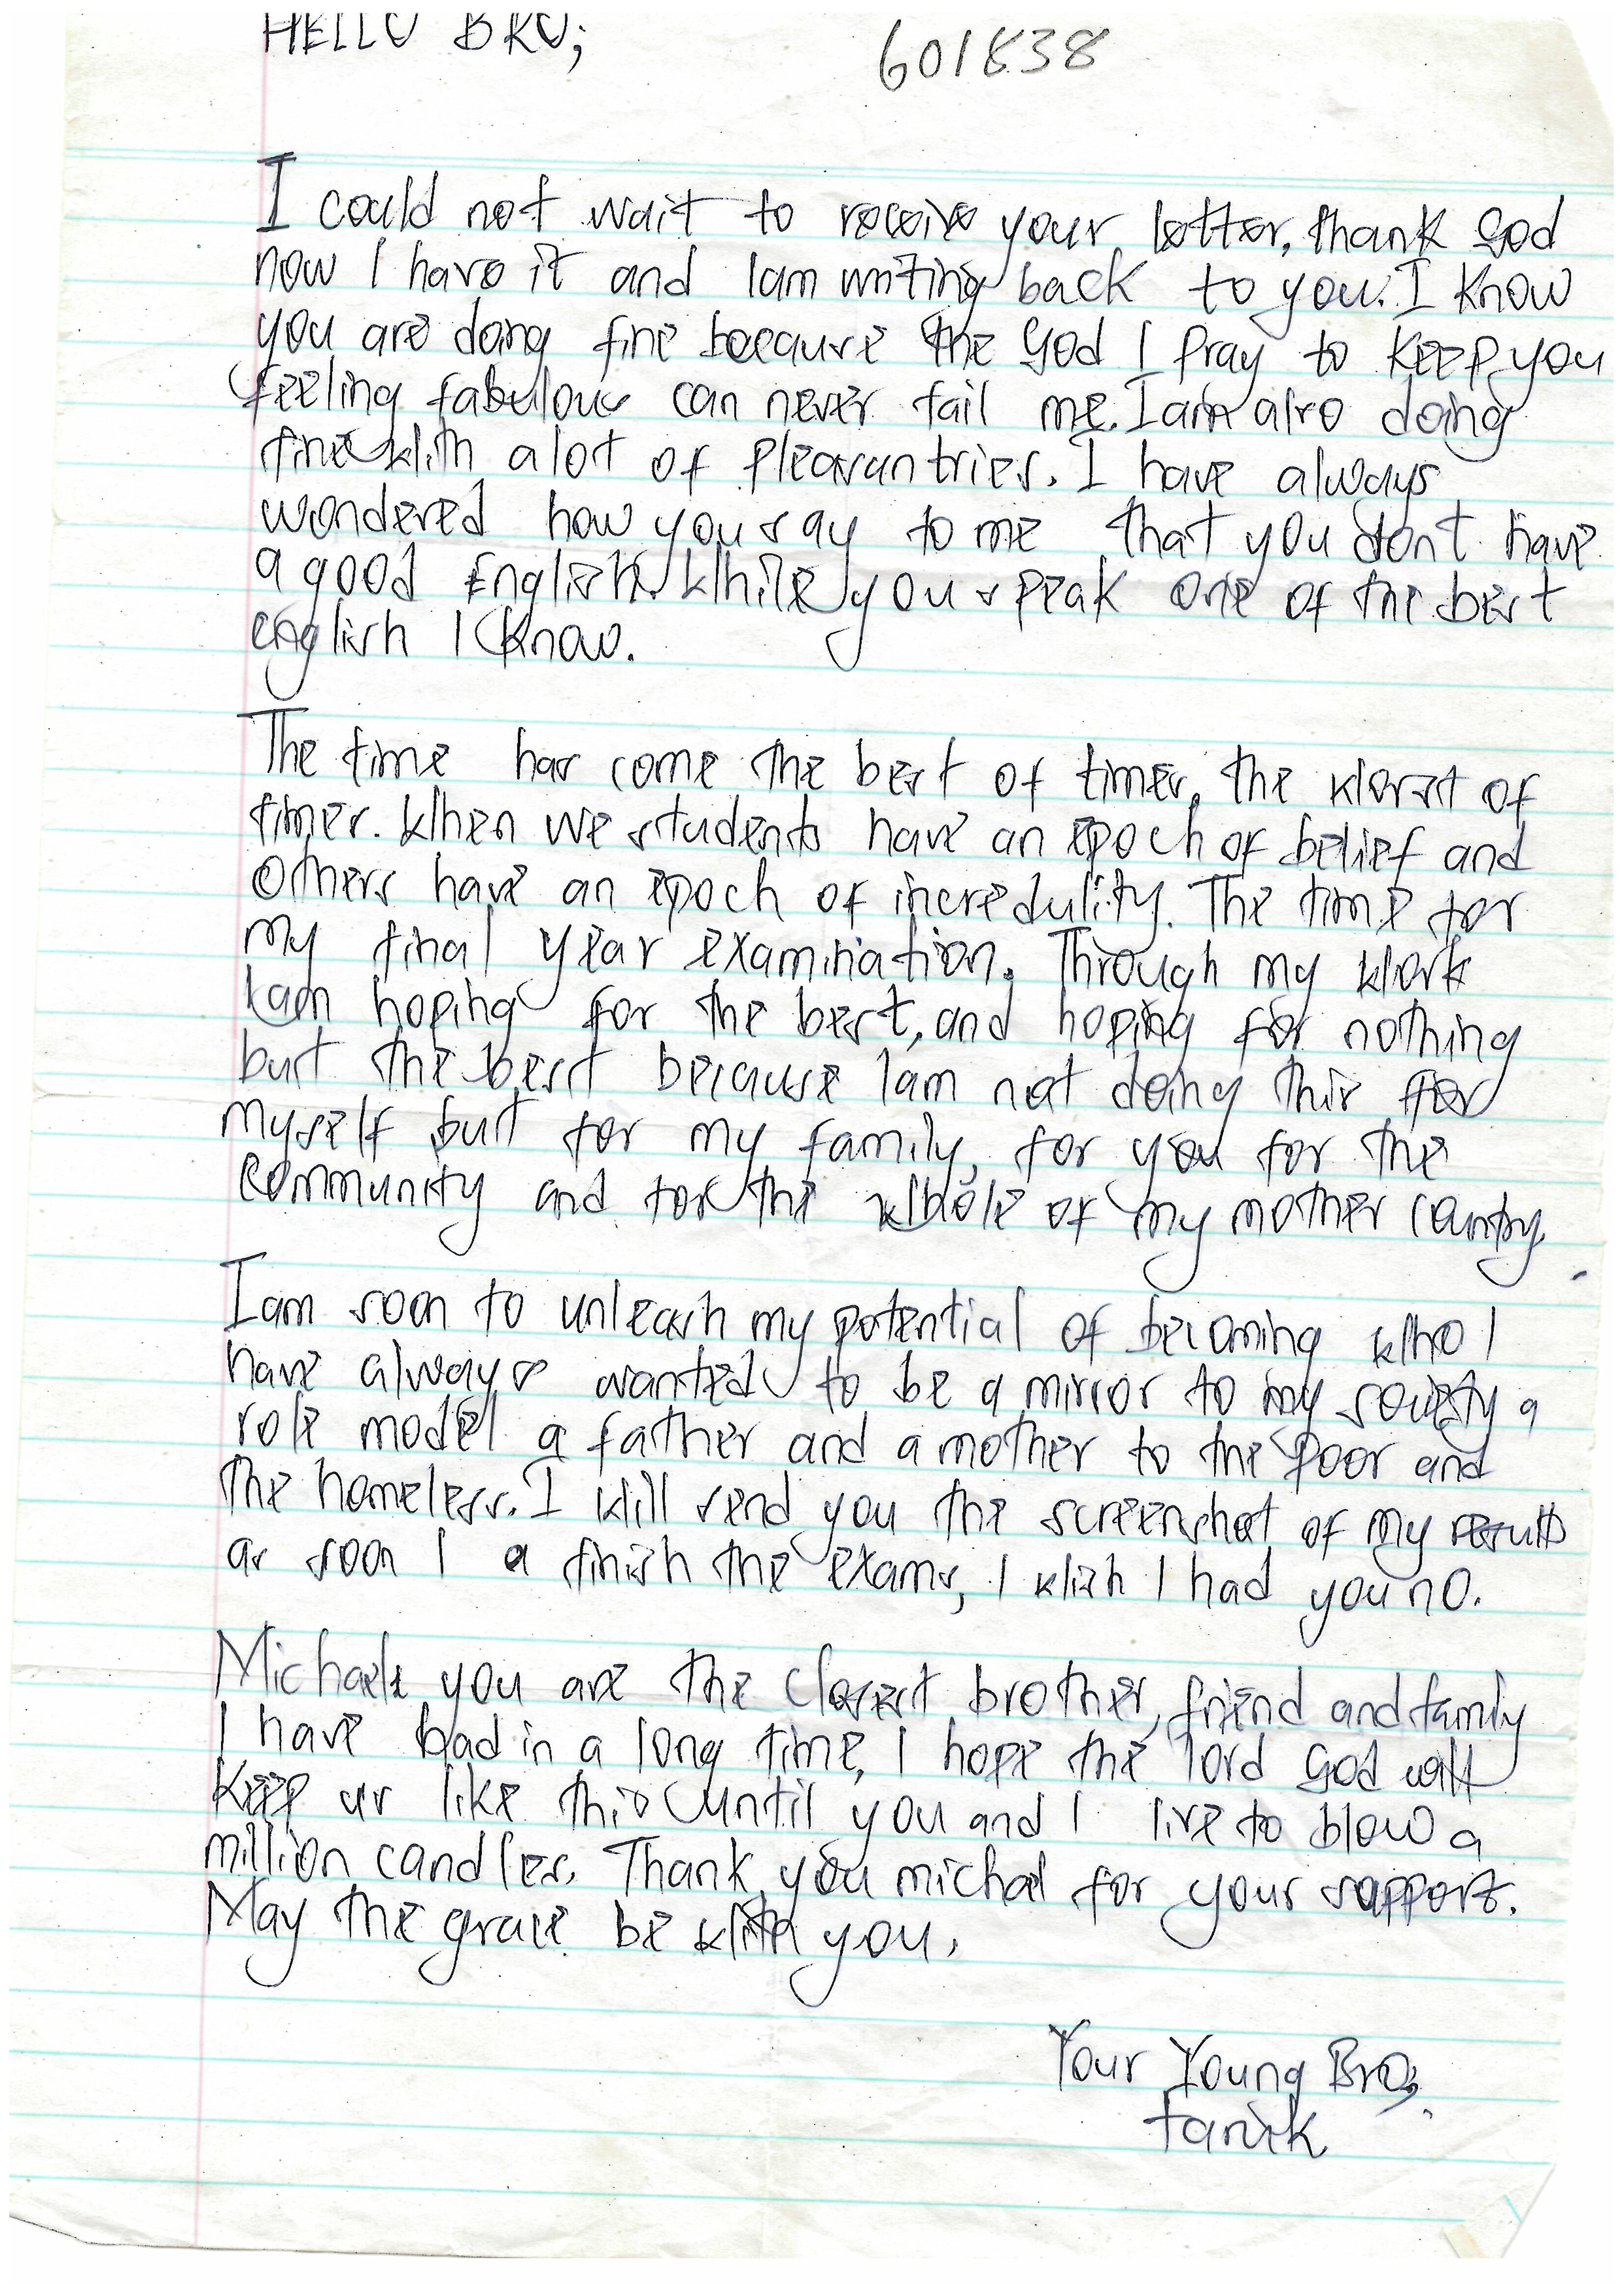 HELLO BRO;
601838
I could not wait to receive your letter, thank God
now I have it and Iam writing back to you. I know
you are doing fine because the God I pray to keep you
feeling fabulous can never fail me. Iam also doing
fine with alot of pleasantries. I have always
wondered how you say to me that you dont have
a good English. While you speak one of the best
english I know.
The time has come the best of times, the worst of
times. When we students have an epoch of belief and
others have an epoch of incredulity. The time for
my final year examination. Through my work
Iam hoping for the best, and hoping for nothing
but the best because Iam not doing this for
myself but for my family, for you for the
community and for the whole of my mother country.
Iam soon to unleash my potential of becoming who I
have always wanted to be a mirror to my society a
role model a father and a mother to the poor and
the homeless. I will send you the screenshot of my results
as soon I a finish the exams, I wish I had you no.
Michael you are the closest brother, friend and family
I have had in a long time, I hope the lord God will
keep us like this until you and I live to blow a
million candles. Thank you michael for your support.
May the grace be with you.
Your Young Bro;